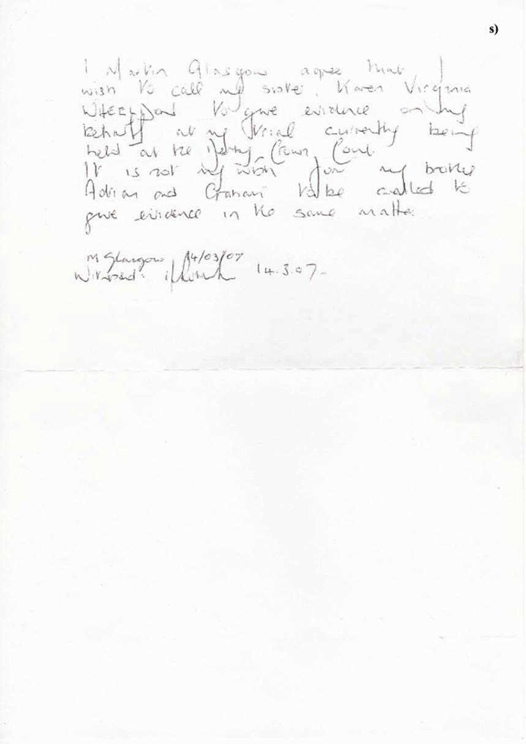 s)
I Martin Glasgow agree that I
wish to call my sister, Karen Virginia
to give evidence on my
behalf at my trial currently being
held at the Derby Crown Court.
It is not my wish for my brother
Adrian and Graham to be called to
give evidence in the same matter.
M Glasgow 14/03/07
Witnessed: 14.3.07.